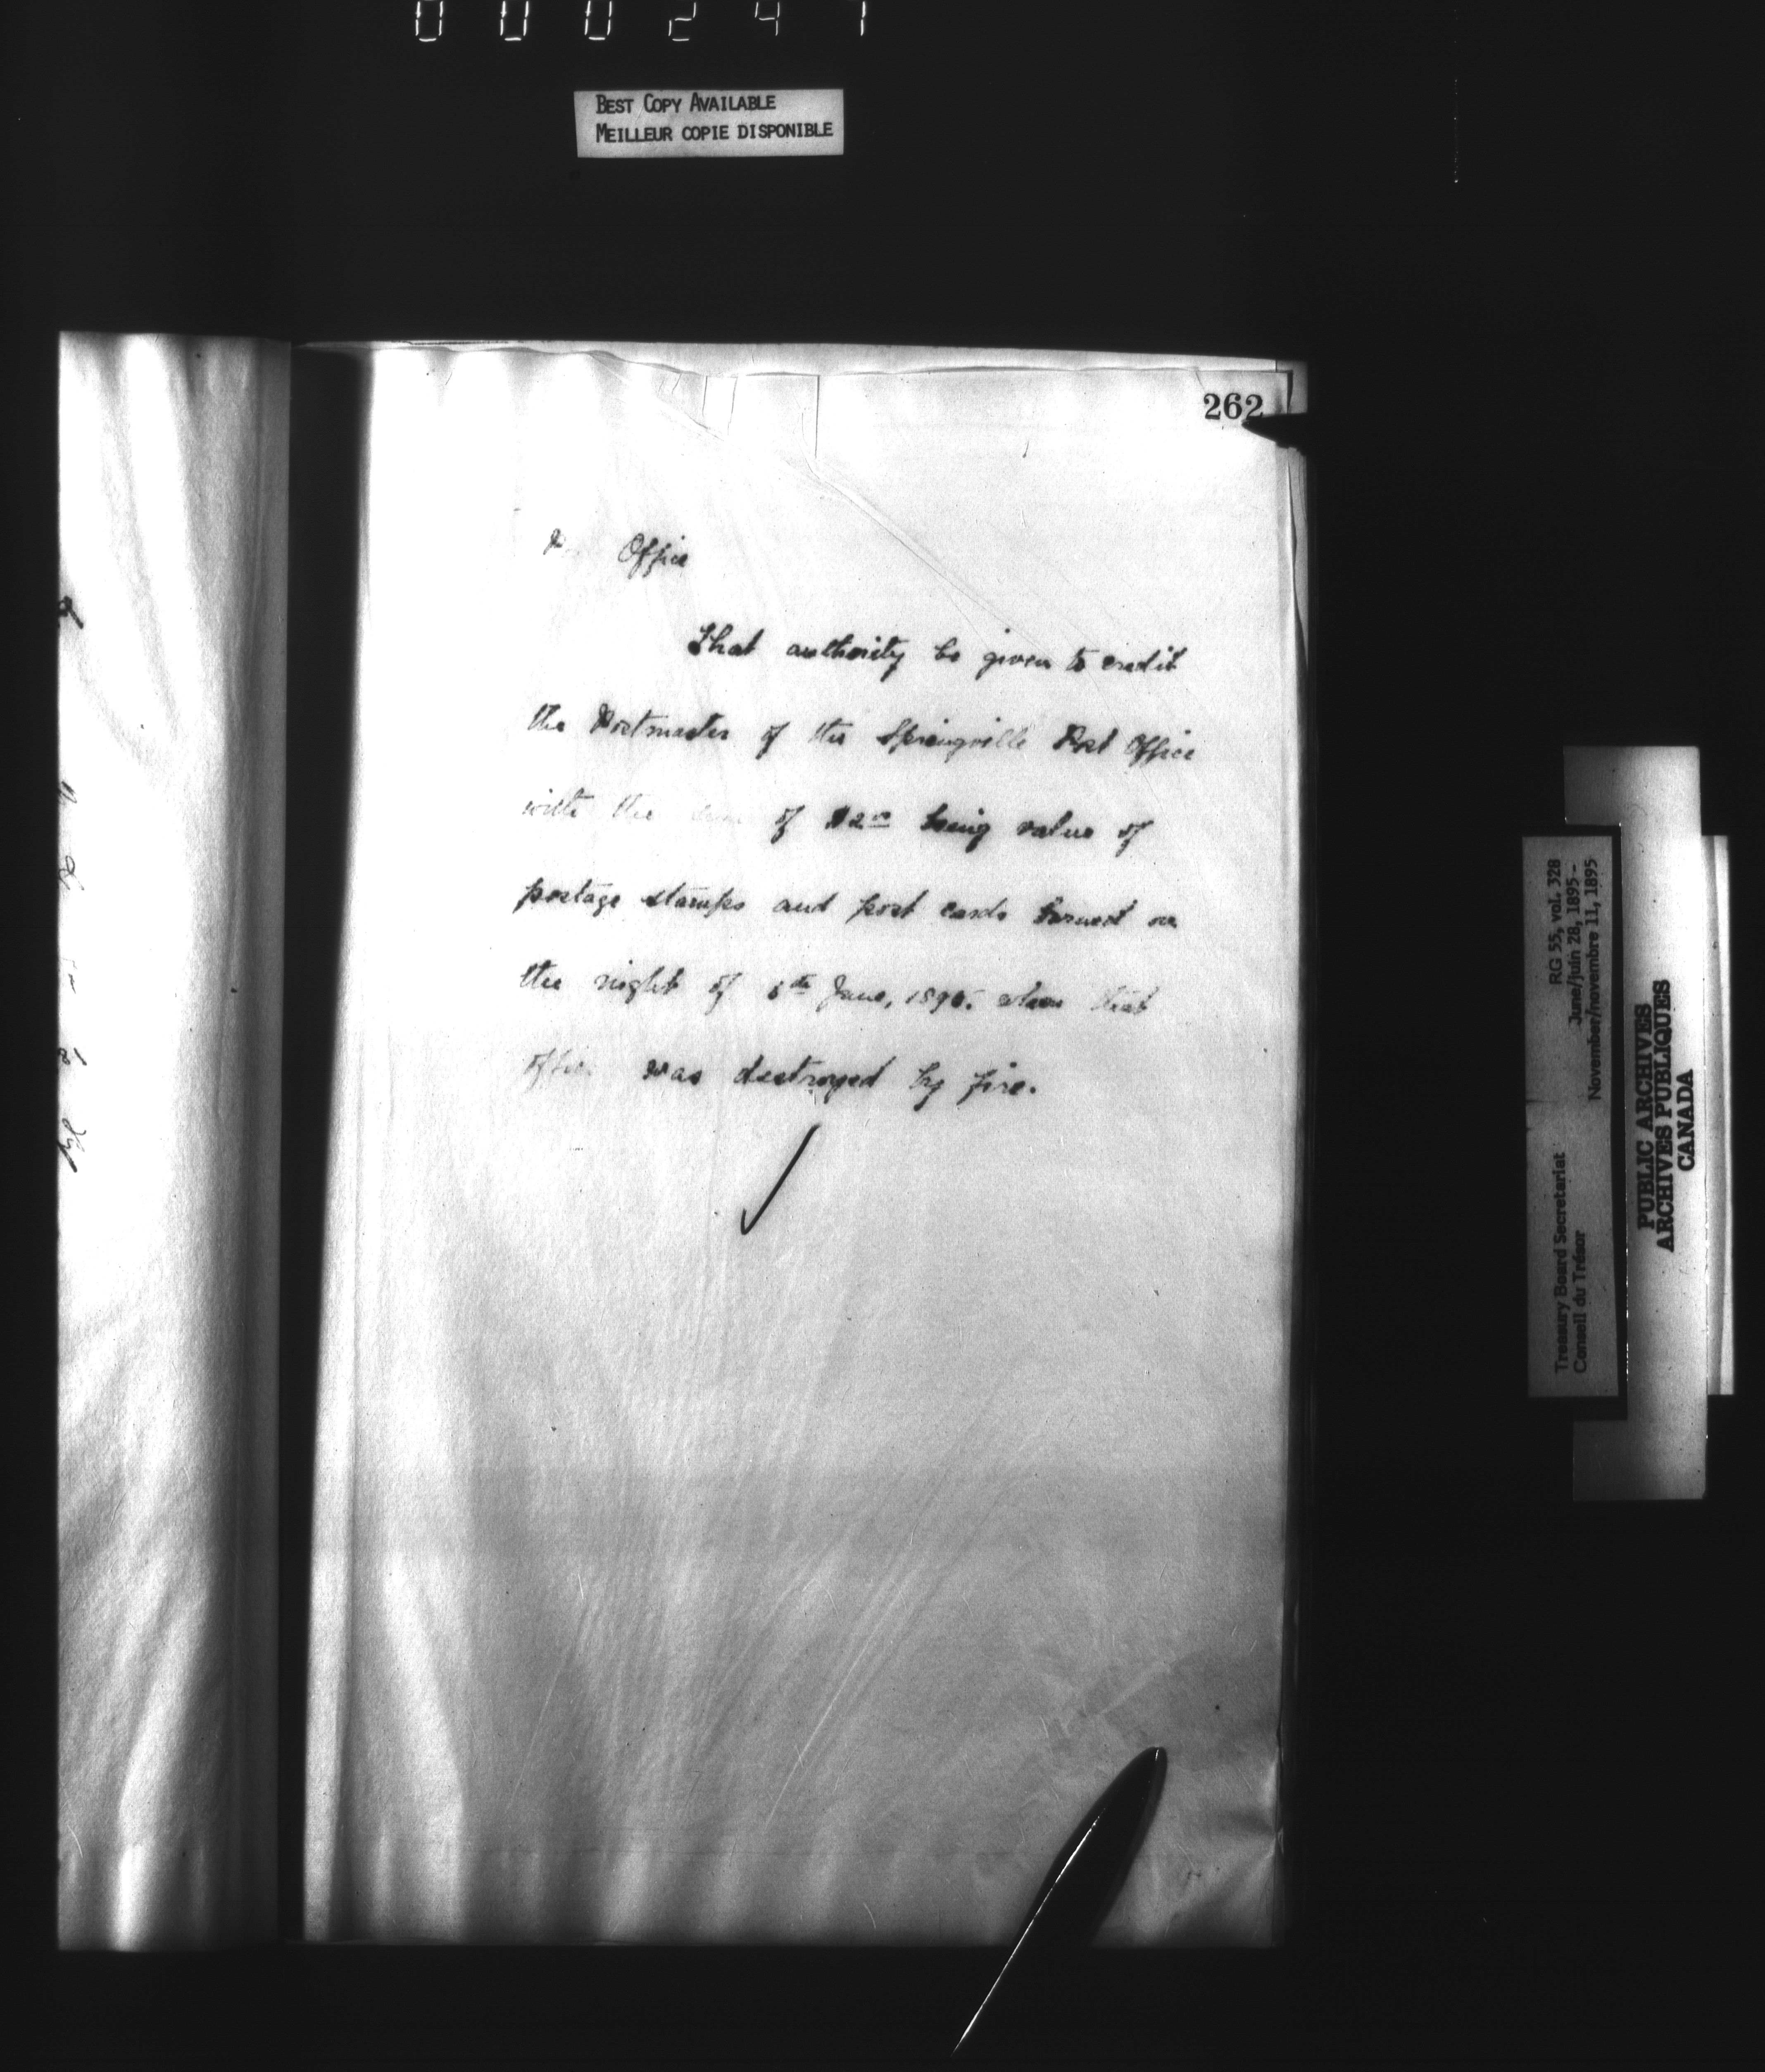 000247
BEST COPY AVAILABLE
MEILLEUR COPIE DISPONIBLE
262
Office
That authority be given to credit
the Postmaster of the Springville Post Office
with the sum of being value of
postage stamps and post cards burned on
the night of June, 1895 when that
office was destroyed by fire.
RG 55, vol. 328
June/juin 28, 1895 -
November/novembre 11, 1895
Treasury Board Secretariat
Conseil du Trésor
PUBLIC ARCHIVES
ARCHIVES PUBLIQUES
CANADA